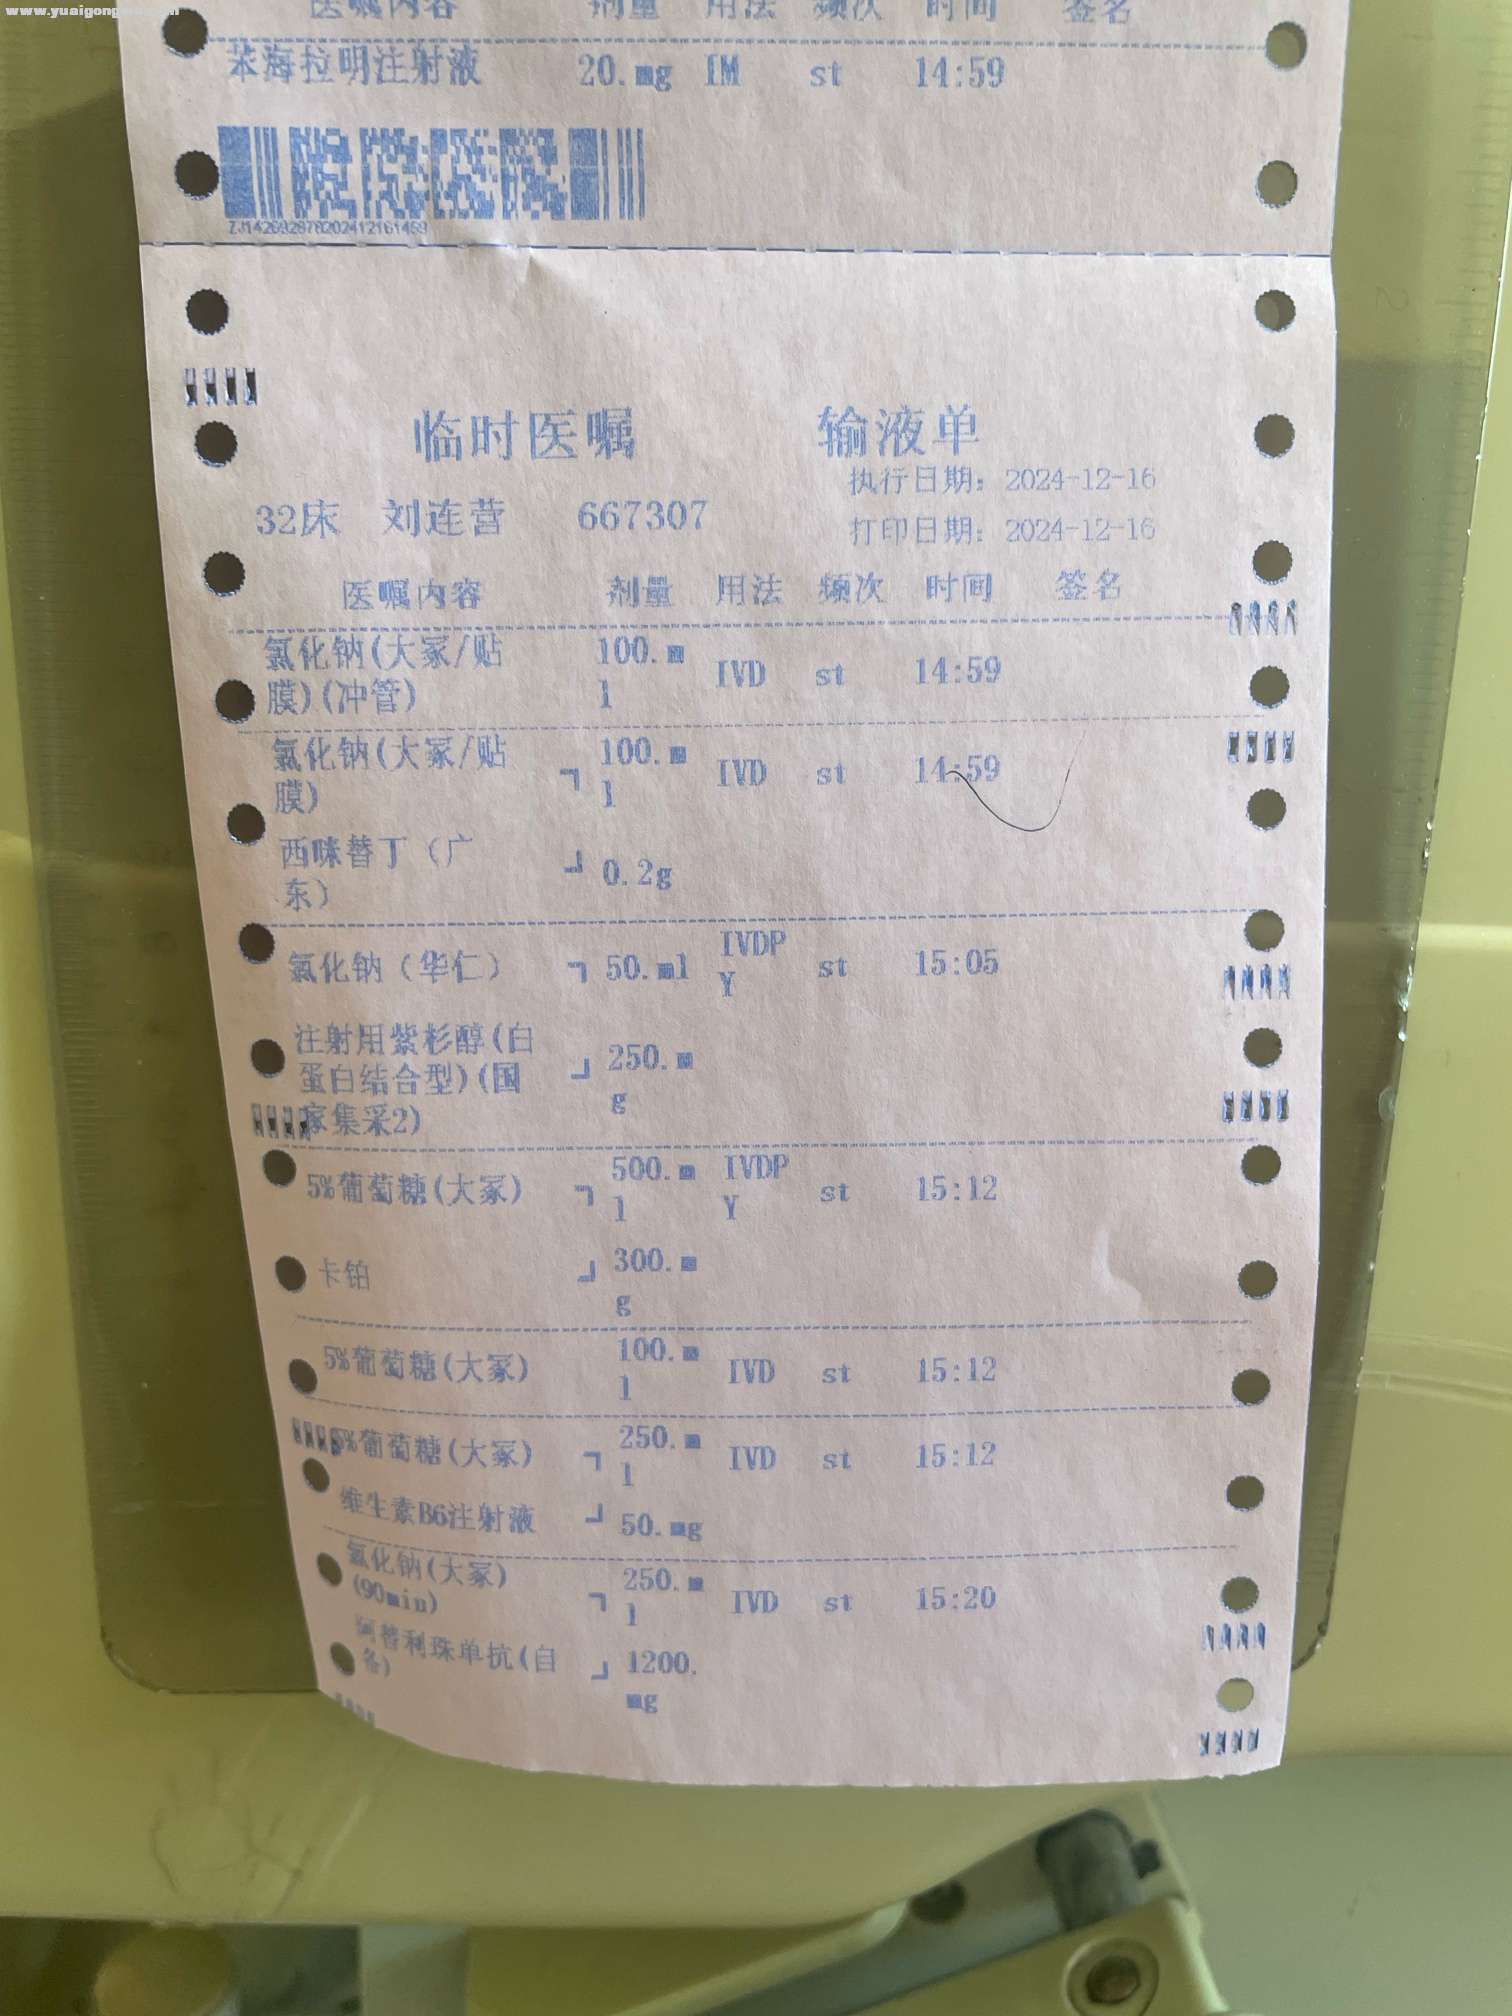 医嘱内容 剂量 用法 频次 时间 签名
苯海拉明注射液 20.mg IM st 14:59
ZJ142692878202412161459
临时医嘱 输液单
执行日期: 2024-12-16
32床 刘连营 667307
打印日期: 2024-12-16
医嘱内容 剂量 用法 频次 时间 签名
氯化钠(大冢/贴 100.m
膜)(冲管) l IVD st 14:59
氯化钠(大冢/贴 ┐ 100.m
膜) l IVD st 14:59
西咪替丁（广 ┘ 0.2g
东）
氯化钠（华仁） ┐ 50.ml IVDP st 15:05
Y
注射用紫杉醇(白
蛋白结合型)(国 ┘ 250.m
家集采2) g
5%葡萄糖(大冢) ┐ 500.m IVDP st 15:12
l Y
卡铂 ┘ 300.m
g
5%葡萄糖(大冢) 100.m IVD st 15:12
l
5%葡萄糖(大冢) ┐ 250.m IVD st 15:12
l
维生素B6注射液 ┘ 50.mg
氯化钠(大冢) ┐ 250.m
(90min) l IVD st 15:20
阿替利珠单抗(自 ┘ 1200.
备) mg